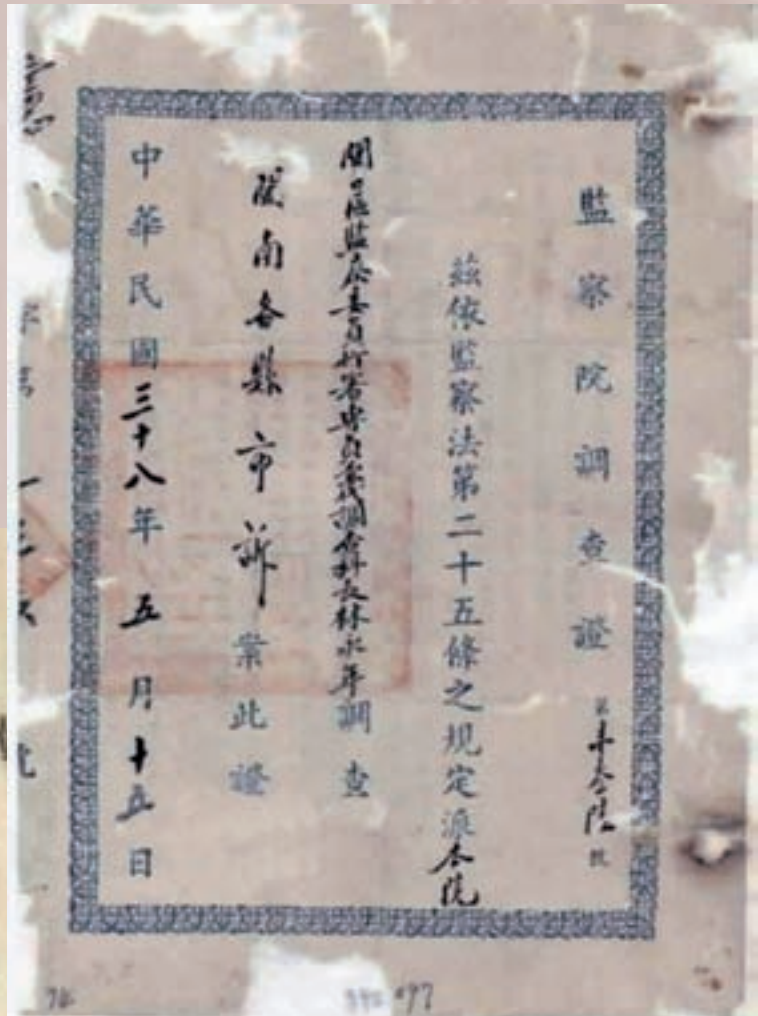 監察院調查證
第 號
茲依監察法第二十五條之規定派本院
閩 區監察委員行署專員兼調查科長林永年調查
閩南各縣市訴 案此證
中華民國三十八年五月十五日